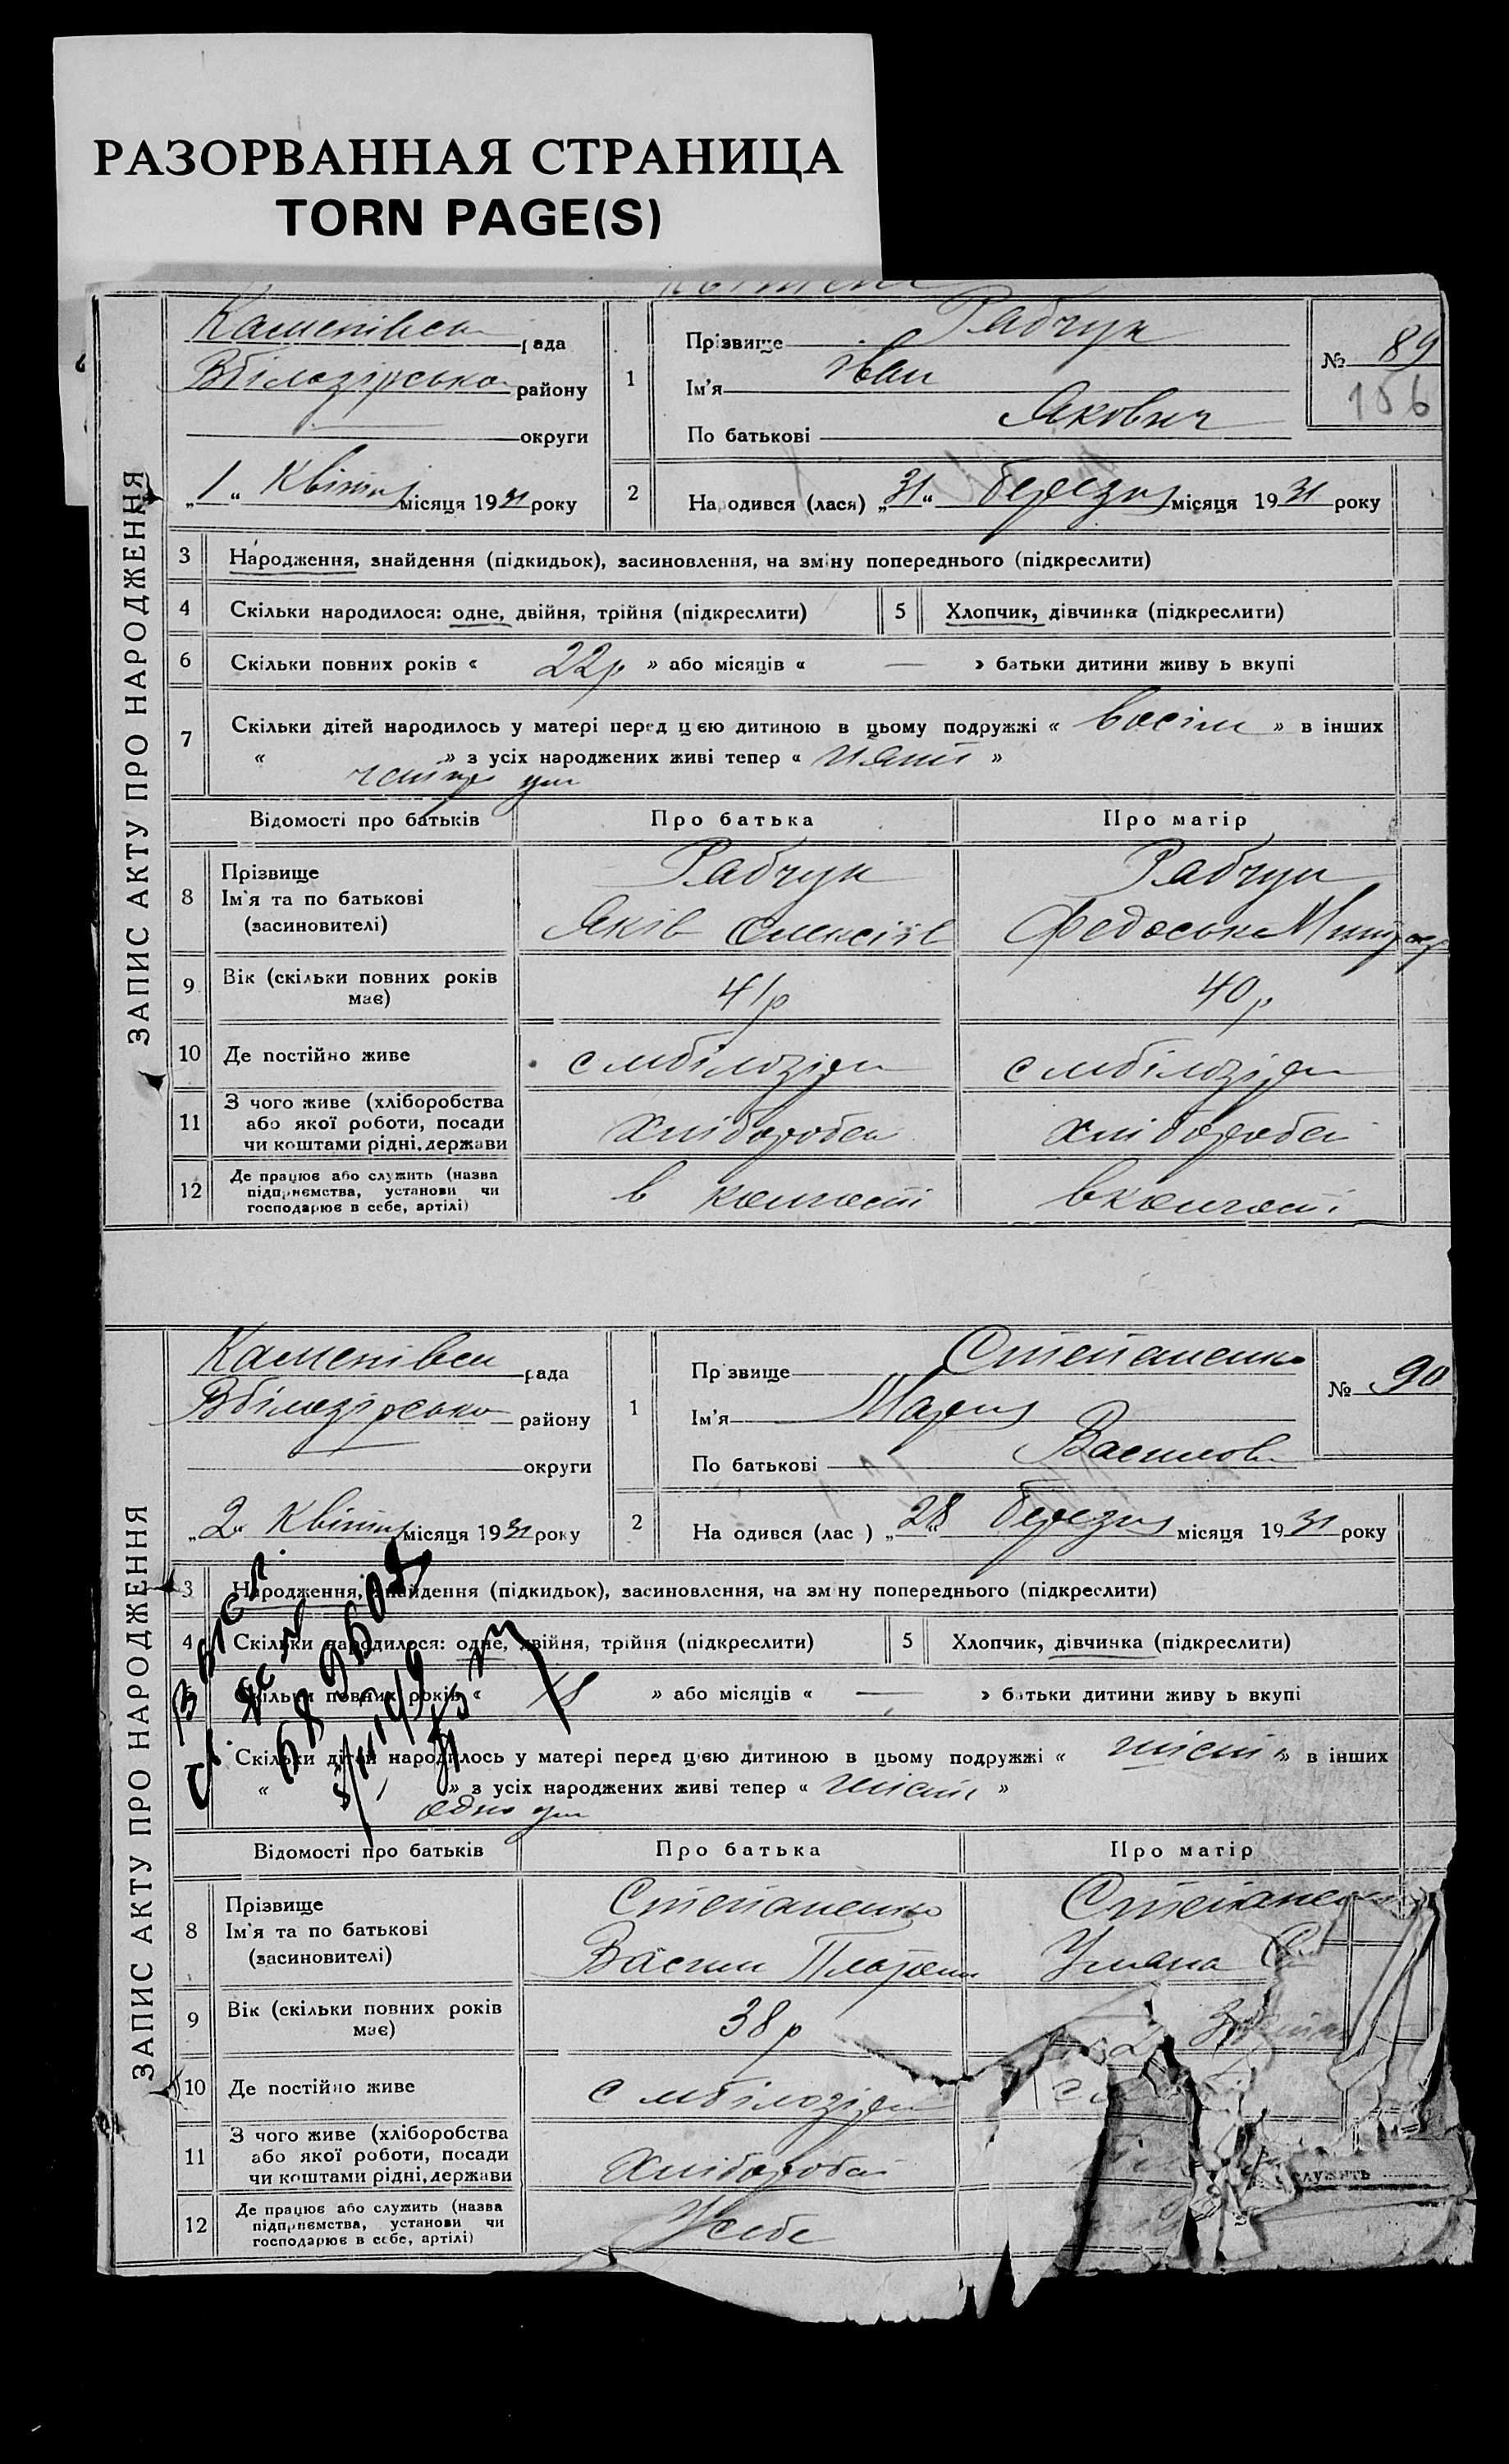 РАЗОРВАННАЯ СТРАНИЦА
TORN PAGE(S)
ЗАПИС АКТУ ПРО НАРОДЖЕННЯ
Каменівська рада
Вбілозірсько району
округи
„1“ Квітня місяця 1931 року
1
Прізвище Рабчук
Ім'я Іван
По батькові Якович
№ 89
156
2
Народився (лася) „31“ березня місяця 1931 року
3 Народження, знайдення (підкидьок), засиновлення, на зміну попереднього (підкреслити)
4 Скільки народилося: одне, двійня, трійня (підкреслити)
5 Хлопчик, дівчинка (підкреслити)
6 Скільки повних років « 22р » або місяців « — » батьки дитини живуть вкупі
7 Скільки дітей народилось у матері перед цією дитиною в цьому подружжі « восім » в інших
« » з усіх народжених живі тепер « пять »
Відомості про батьків
Про батька
Про матір
8 Прізвище
Ім'я та по батькові
(засиновителі)
Рабчук
Яків Олексіїв
Рабчук
Федоська
9 Вік (скільки повних років
має)
41р
40р
10 Де постійно живе
с мбілозірки
с мбілозірки
11 З чого живе (хліборобства
або якої роботи, посади
чи коштами рідні, держави
хлібороба
хлібороба
12 Де працює або служить (назва
підприємства, установи чи
господарює в себе, артілі)
ЗАПИС АКТУ ПРО НАРОДЖЕННЯ
Каменівська рада
Вбілозірсько району
округи
„2“ Квітня місяця 1931 року
1
Прізвище Степаненко
Ім'я Мария
По батькові Василов
№ 90
2
На одився (лас ) „28“ березня місяця 1931 року
3 Народження, знайдення (підкидьок), засиновлення, на зміну попереднього (підкреслити)
4 Скільки народилося: одне, двійня, трійня (підкреслити)
5 Хлопчик, дівчинка (підкреслити)
Скільки повних років « 18 » або місяців « — » батьки дитини живуть вкупі
Скільки дітей народилось у матері перед цією дитиною в цьому подружжі « шість » в інших
« » з усіх народжених живі тепер « шість »
одно ум
Відомості про батьків
Про батька
Про матір
8 Прізвище
Ім'я та по батькові
(засиновителі)
Степаненко
Василь Платон
Степаненко
Уляна
9 Вік (скільки повних років
має)
38р
10 Де постійно живе
с мбілозірки
11 З чого живе (хліборобства
або якої роботи, посади
чи коштами рідні, держави
хлібороба
служить
12 Де працює або служить (назва
підприємства, установи чи
господарює в себе, артілі)
У себе